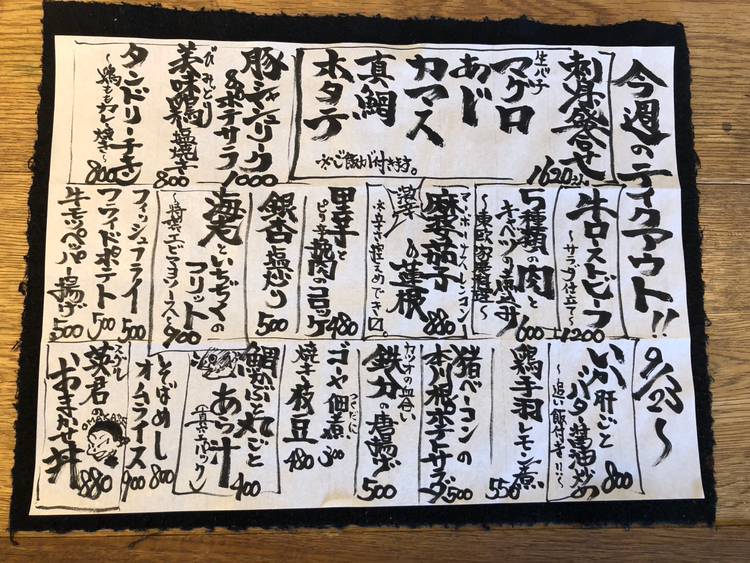 今週のテイクアウト!!
9/23〜
刺身盛合せ
1620
生バチ
マグロ
あじ
カマス
真鯛
ホタテ
※ご飯が付きます。
豚シャンリーク
&ポテサラ
1000
びみどり
美味鶏塩焼き
800
タンドリーチキン
〜鶏ももカレー焼き〜
800
牛ローストビーフ
〜サラダ仕立て〜
1200
5種類の肉と
キャベツの煮込み
600
マーボーナス・レンコン
麻婆茄子
の蓮根
880
激辛
※辛さ控えめでき〼。
里芋と
ピリ辛挽肉のコロッケ
480
銀杏塩炒り
500
海老といちヂクの
フリット
〜特製エビマヨソース〜
900
フィッシュフライ
500
フライドポテト
500
牛モツペッパー揚げ
500
いか肝ごと
バタ醤油炒め
〜追い飯付き!!〜
800
鶏手羽レモン煮
550
猪ベーコンの
本川根ポテサラダ
500
カツオの血合い
鉄分の唐揚げ
500
つくだに
ゴーヤ佃煮
300
焼き枝豆
480
鯛かぶと丸ごと
あら汁
(真空パック)
400
そばめし
800
オムライス
900
英君の
おまかせ丼
OMAKASE
880